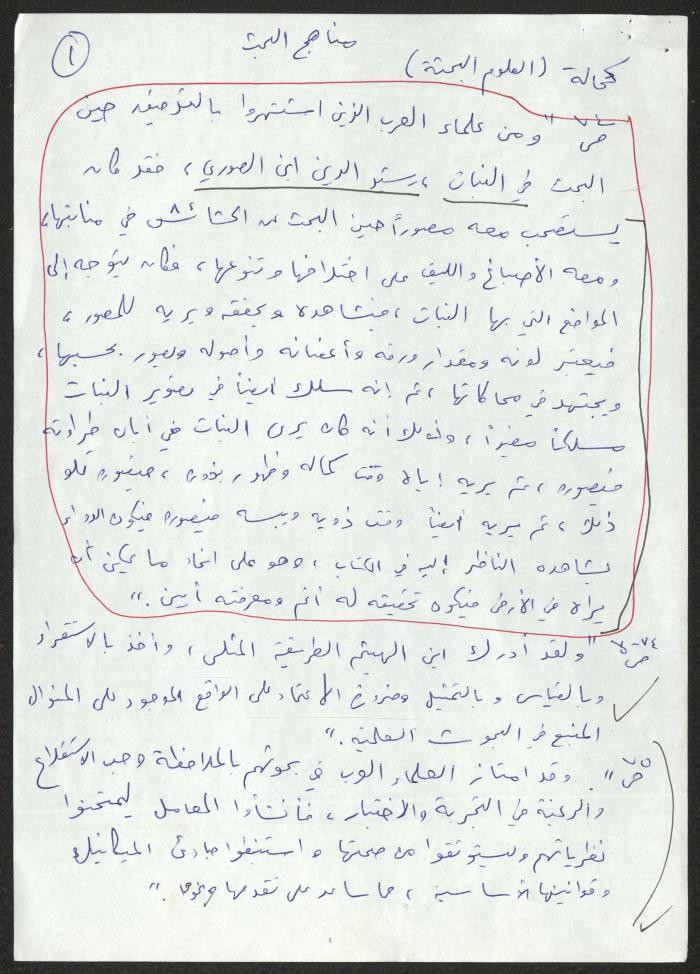 ١
مناهج البحث
كحالة (العلوم البحتة)
ص ٧٤ " ومن علماء العرب الذين اشتهروا بالتوصيف حين
البحث في النبات ، رستو الدين ابن الصوري ، فقد كان
يستصحب معه مصوراً حين البحث عن الحشائش في منابتها ،
ومعه الأصباغ والليف على اختلافها وتنوعها ، فكان يتوجه إلى
المواضع التي بها النبات ، فيشاهده ويحققه ويريه للمصور ،
فيعتبر لونه ومقدار ورقه وأغصانه وأصوله ويصور بحسبها ،
ويجتهد في محاكاتها ، ثم إنه سلك أيضاً في تصوير النبات
مسلكاً مفيداً ، وذلك أنه كان يرى النبات في أبان طراوته
فيصوره ، ثم يريه إياه وقت كماله وظهور بذوره ، فيصوره تلو
ذلك ، ثم يريه أيضاً وقت ذويه ويبسه فيصوره فيكون الدواء
يشاهده الناظر إليه في الكتاب ، وهو على انحاء ما يمكن أن
يراه في الأرض فيكون تحقيقه له أتم ومعرفته أبين . "
ص ٧٤ " ولقد أدرك ابن الهيثم الطريقة المثلى ، وأخذ بالاستقراء
وبالقياس وبالتمثيل وضرورة الاعتماد على الواقع الموجود على المنوال
المتبع في البحوث العلمية . "
ص ٧٥ " وقد امتاز العلماء العرب في بحوثهم بالملاحظة وحب الاستطلاع
والرغبة في التجربة والاختبار ، فأنشأوا المعامل ليمتحنوا
نظرياتهم وليستوثقوا من صحتها واستنبطوا مبادئ الميكانيك
وقوانينها الأساسية ، مما ساعد على تقدمها ونموها . "